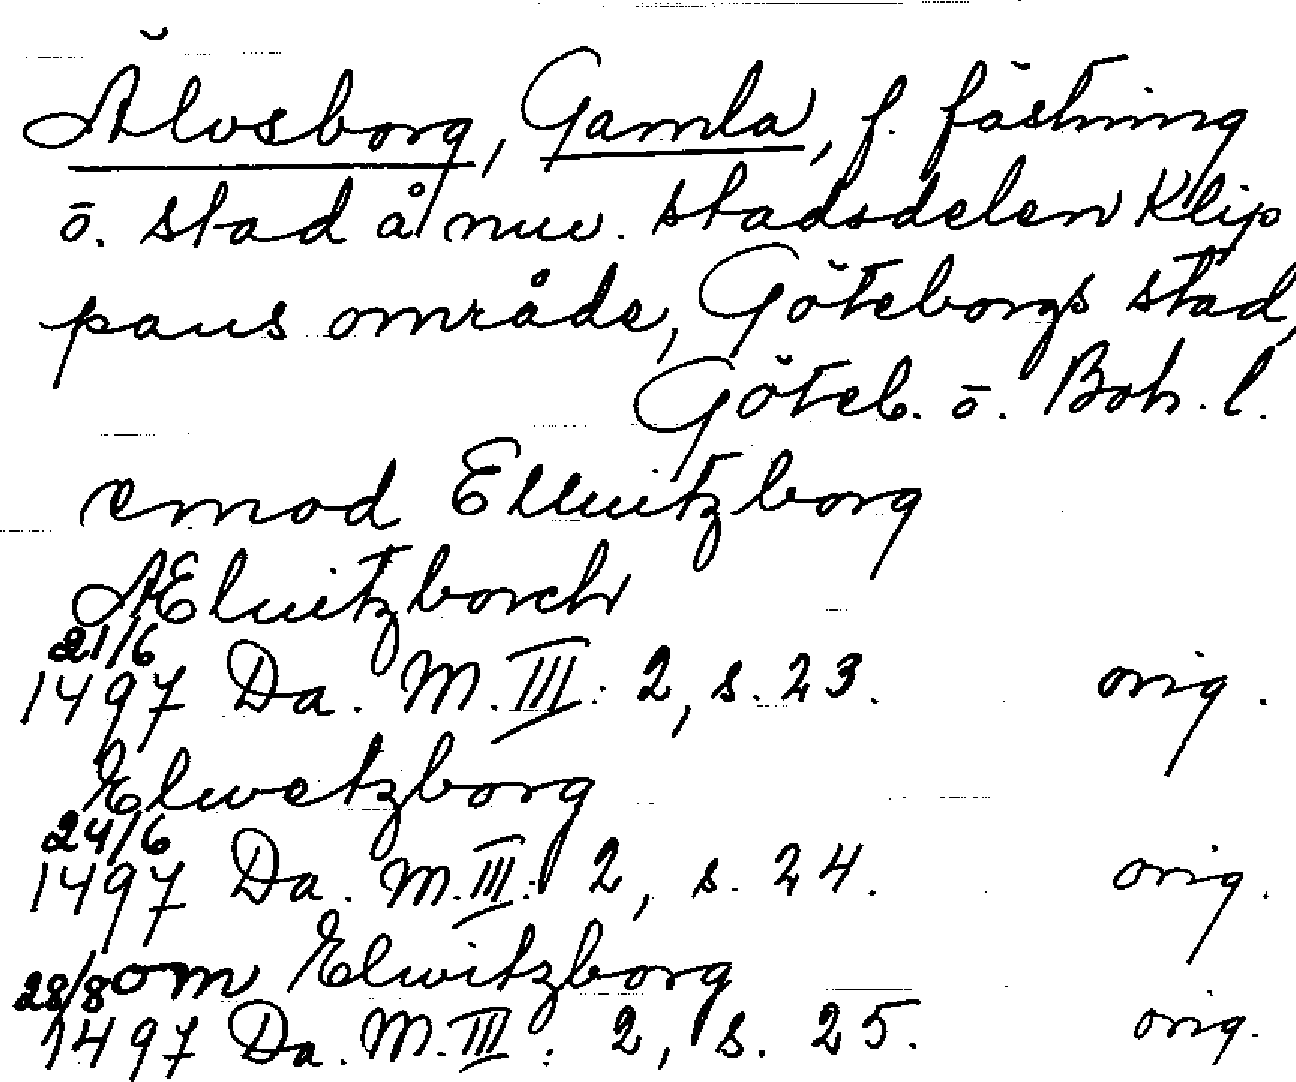 Älvsborg, Gamla, f. fästning
o. stad å nuv. stadsdelen Klip
pans område, Göteborgs stad,
Göteb. o. Boh. l.
emod Elluitzborg
Æluitzborch
21/6
1497 Da. M. III: 2, s. 23. orig.
Elwetzborg
24/6
1497 Da. M. III: 2, s. 24. orig.
om Elwitzborg
28/8
1497 Da. M. III: 2, s. 25. orig.